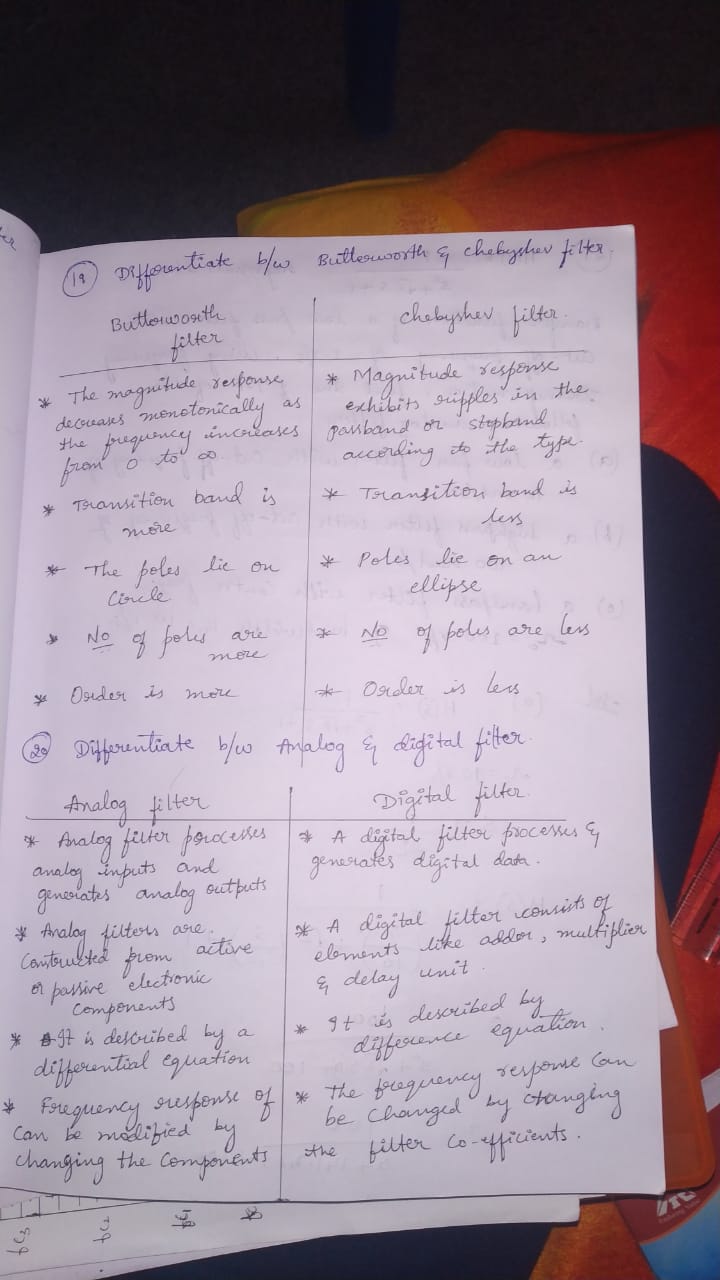 er
19 Differentiate b/w Butterworth & chebyshev filter.
Butterworth
filter
chebyshev filter.
* The magnitude response
decreases monotonically as
the frequency increases
from 0 to ∞
* Magnitude response
exhibits ripples in the
passband or stopband
according to the type.
* Transition band is
more
* Transition band is
less
* The poles lie on
Circle
* Poles lie on an
ellipse
* No of poles are
more
* No of poles are less
* Order is more
* Order is less
20 Differentiate b/w Analog & digital filter.
Analog filter
Digital filter.
* Analog filter processes
analog inputs and
generates analog outputs
* A digital filter processes &
generates digital data.
* Analog filters are.
Constructed from active
or passive electronic
Components
* A digital filter consists of
elements like adder, multiplier
& delay unit.
* It is described by a
differential equation
* It is described by
difference equation.
* Frequency response of
Can be modified by
changing the Components
* The frequency response Can
be Changed by changing
the filter Co-efficients.